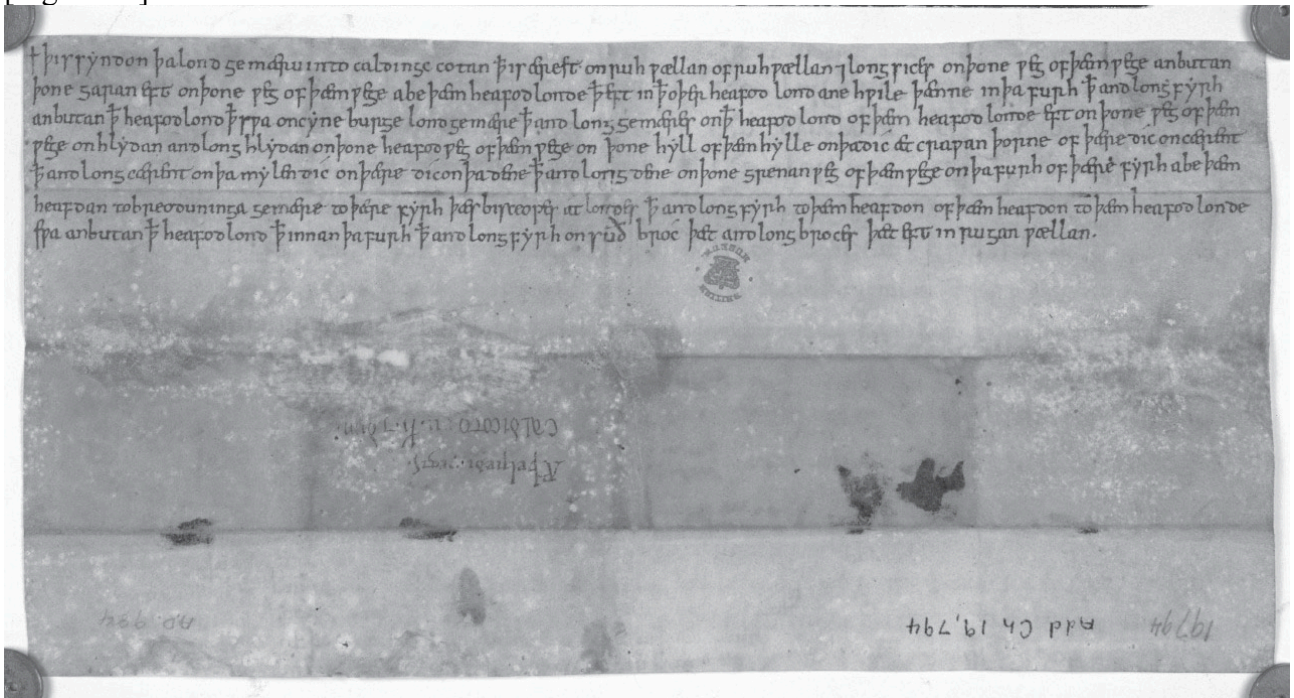 † þis syndon þa lond gemæru into caldinge cotan ꝥ is ærest on ruh ƿællan of ruh ƿællan ⁊long sices on þone ƿeg of þæm ƿege anbutan
þone garan eft on þone ƿeg of þæm ƿege abe þæm heafod londe ꝥ eft in ꝥ oþer heafod lond ane hƿile þænne in þa furh ꝥ andlong fyrh
anbutan ꝥ heafod lond ꝥ sƿa on cyne burge lond gemære ꝥ andlong gemæres on ꝥ heafod lond of þæm heafod londe eft on þone ƿeg of þæm
ƿege on hlydan andlong hlydan on þone heafod ƿeg of þæm ƿege on þone hyll of þæm hylle on þa dic æt craƿan þorne of þære dic on cærent
ꝥ andlong cærent on þa mylen dic on þære dic on þa dene ꝥ andlong dene on þone grenan ƿeg of þæm ƿege on þa furh of þære fyrh abe þæm
heafdan to breoduninga gemære to þære fyrh þæs bisceopes londes ꝥ andlong fyrh to þæm heafdon of þæm heafdon to þæm heafod londe
sƿa anbutan ꝥ heafod lond ꝥ innan þa furh ꝥ andlong fyrh on suð broc þæt andlong broces þæt eft in rugan ƿællan.
Add Ch 19,794
19794